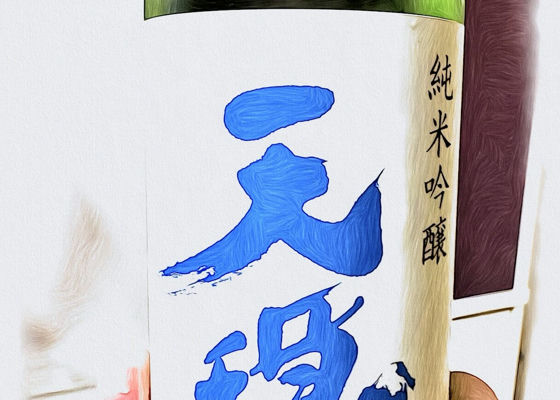 純米吟醸
天